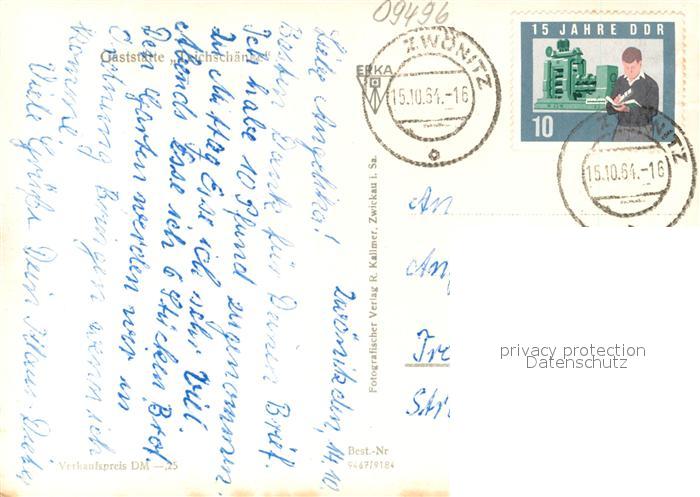 09496
ZWÖNITZ
15.10.64.-16
ERKA
15 JAHRE DDR
10
ZWÖNITZ
15.10.64.-16
Gaststätte „Teichschänke"
Zwönitz, den 14.10.
Liebe Angelika!
Besten Dank für Deinen Brief.
Ich habe 10 Pfund zugenommen.
Zu Mittag Esse ich sehr viel.
Abends Esse ich 6 Stücken Brot.
Den Garten werden wir in
Ordnung bringen wenn ich
komme.
Viele Grüße Dein Klaus-Dieter
Fotografischer Verlag R. Kallmer, Zwickau i. Sa.
An
Ang
Str
Verkaufspreis DM —,25
Best.-Nr
9467/9184
privacy protection
Datenschutz